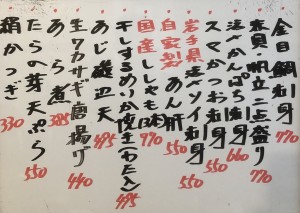 金目鯛刺身 770
赤貝・帆立二点盛り 770
活〆かんぱち刺身 660
スマかつお刺身 550
岩手県活〆ソイ刺身
自家製あん肝 550
国産ししゃも 770
干しするめいか焼(わた入) 495
あじ磯辺天 495
生ワカサギ唐揚げ 440
あら煮 385
たらの芽天ぷら 550
絹かつぎ 330